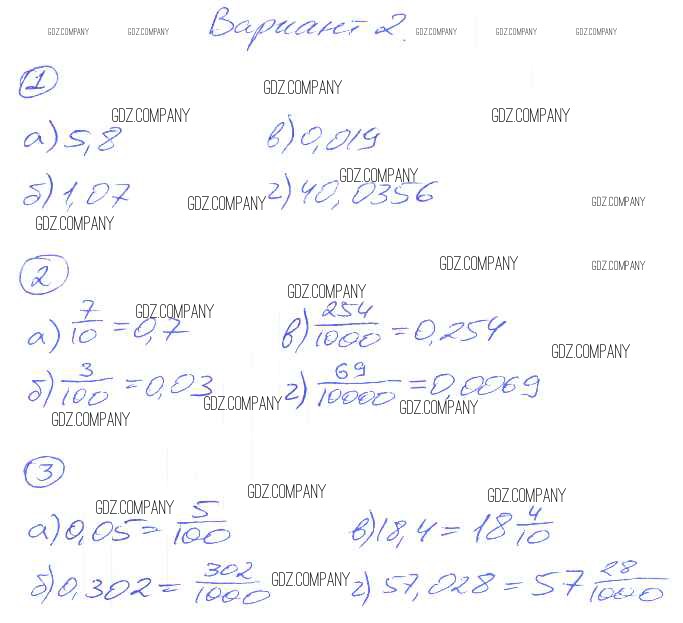 GDZ.COMPANY GDZ.COMPANY Вариант 2. GDZ.COMPANY GDZ.COMPANY GDZ.COMPANY
1 GDZ.COMPANY
GDZ.COMPANY GDZ.COMPANY
а) 5,8 в) 0,019
GDZ.COMPANY
б) 1,07 GDZ.COMPANY г) 40,0356 GDZ.COMPANY
GDZ.COMPANY
2 GDZ.COMPANY GDZ.COMPANY
GDZ.COMPANY
GDZ.COMPANY
а) 7/10 = 0,7 в) 254/1000 = 0,254
GDZ.COMPANY
б) 3/100 = 0,03 г) 69/10000 = 0,0069
GDZ.COMPANY GDZ.COMPANY
GDZ.COMPANY
3
GDZ.COMPANY GDZ.COMPANY GDZ.COMPANY
а) 0,05 = 5/100 в) 18,4 = 18 4/10
б) 0,302 = 302/1000 GDZ.COMPANY г) 57,028 = 57 28/1000